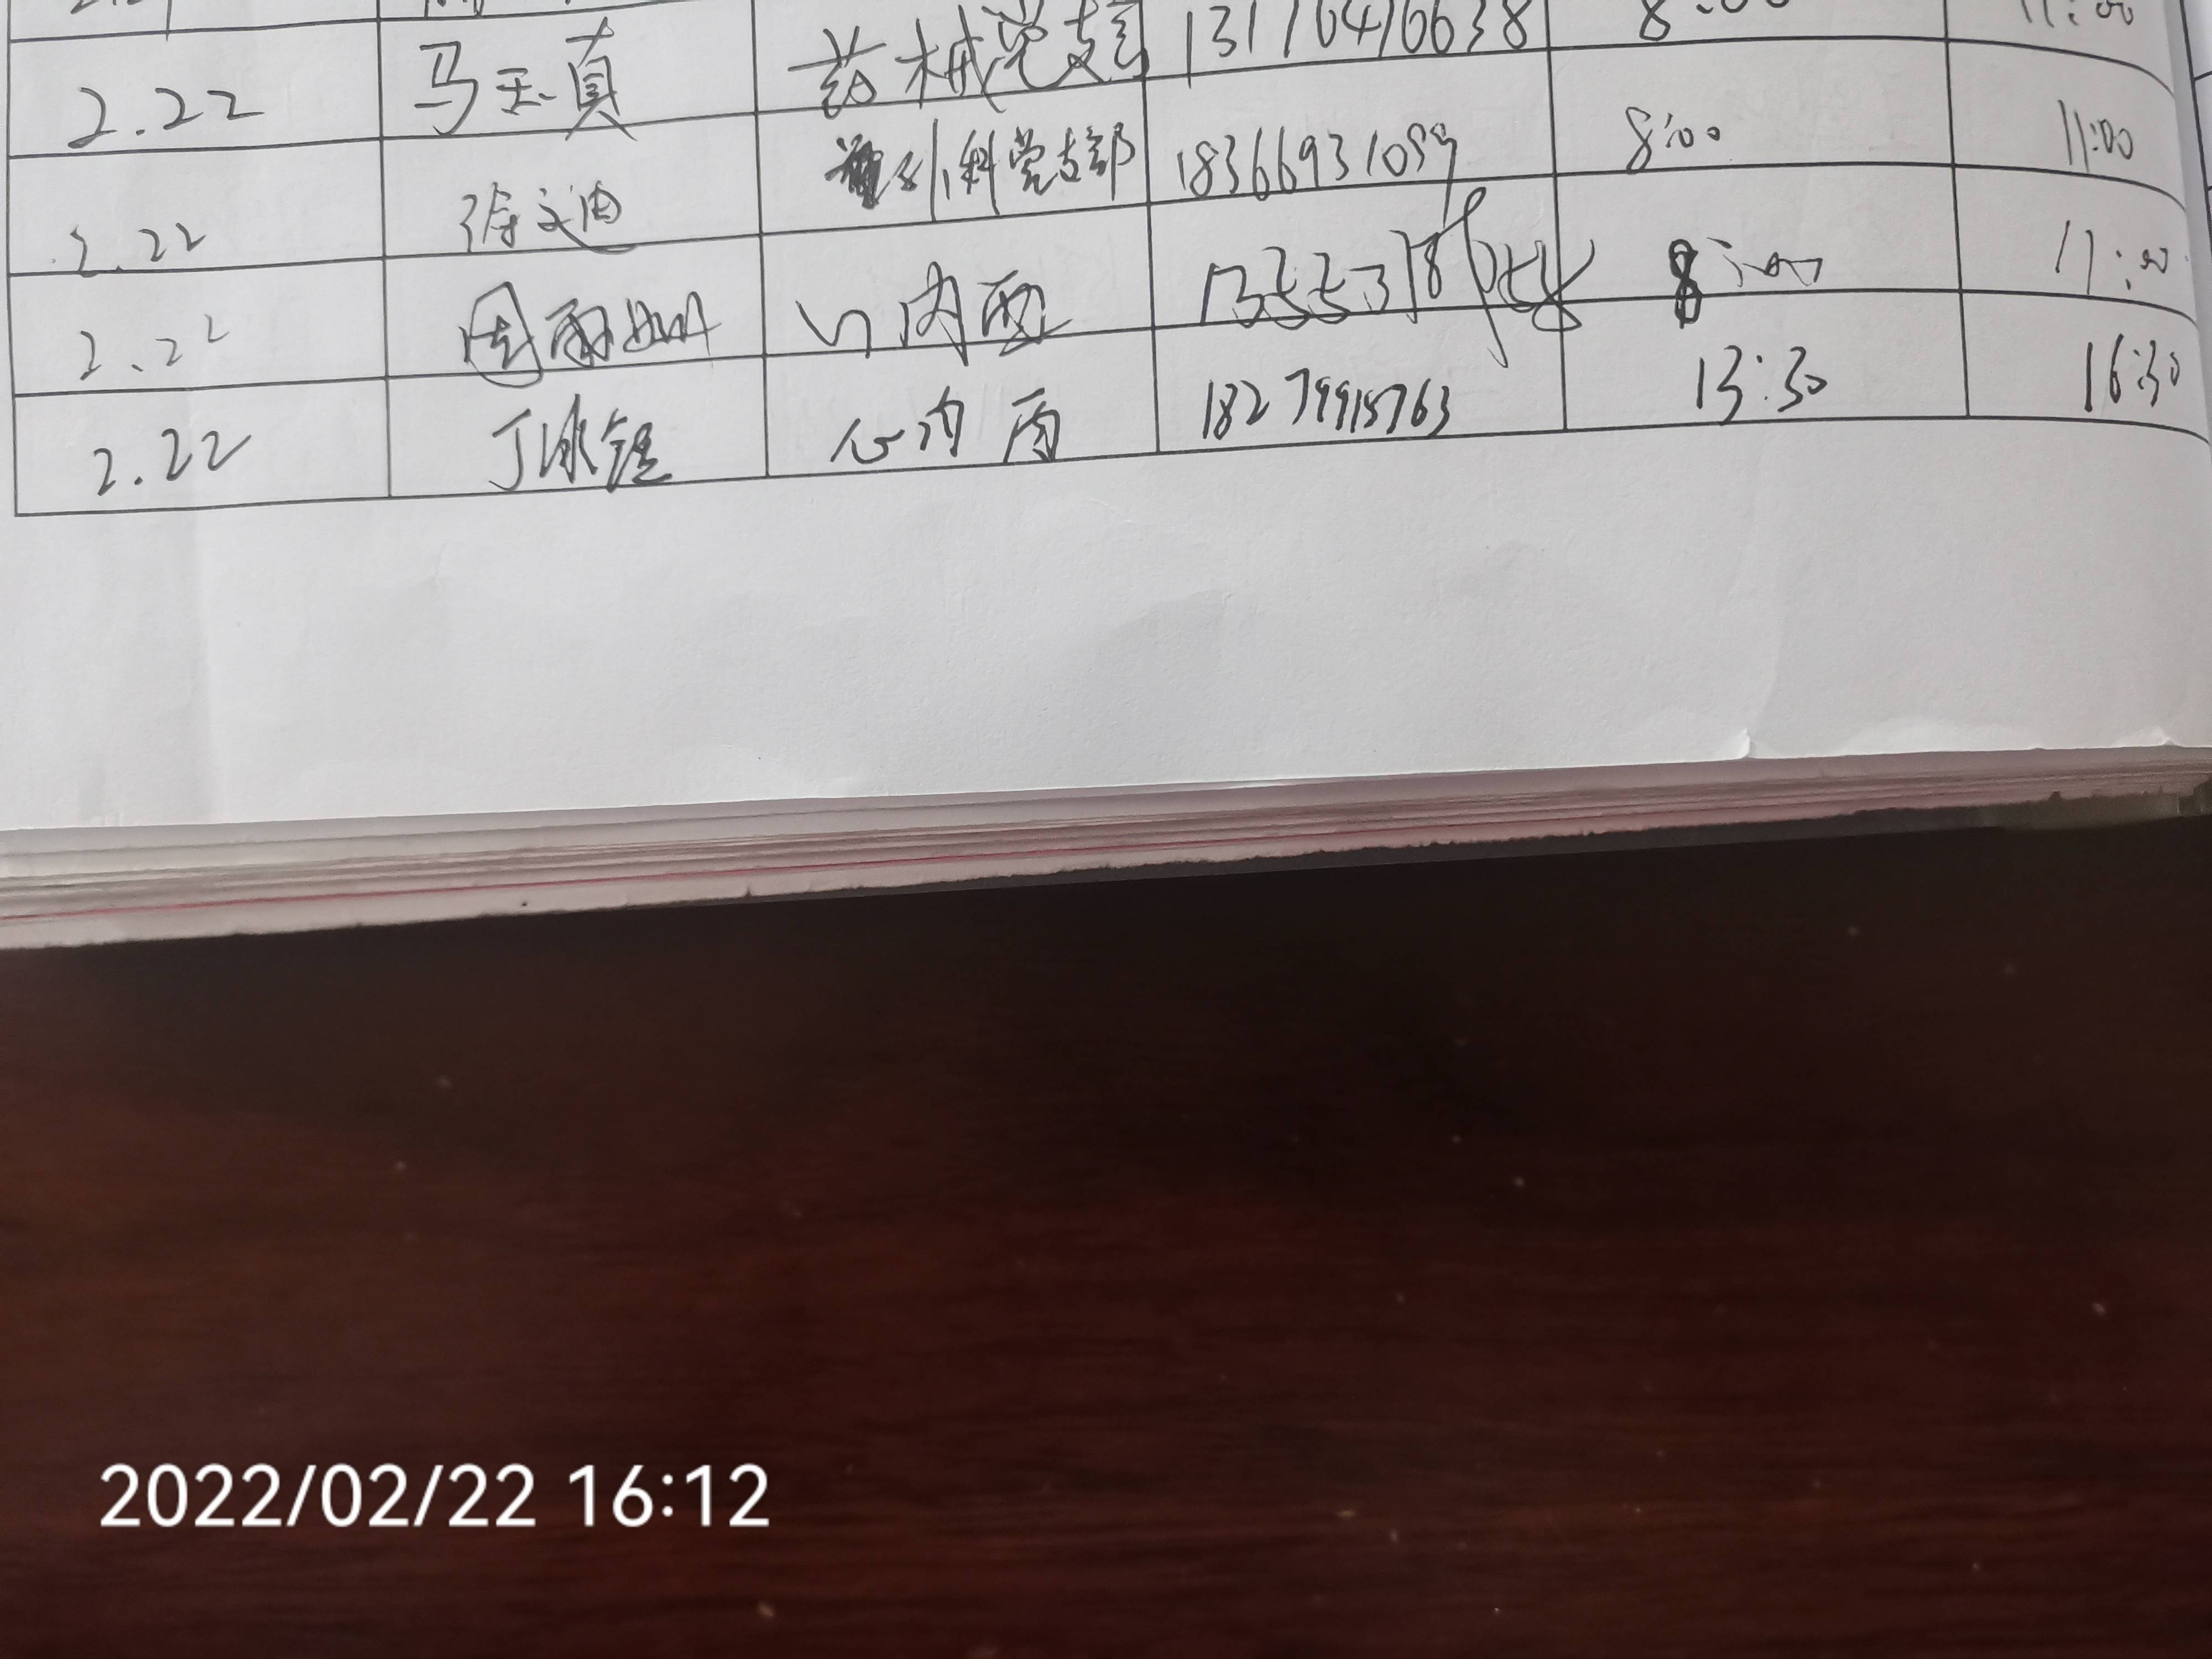 2.22 马玉真 药械党支部 13176416638 8:00 11:00
2.22 徐文迪 外科党支部 18366931059 8:00 11:00
2.22 周雨 心内西 8:00 11:00
2.22 丁冰 心内西 18279915763 13:30 16:30
2022/02/22 16:12